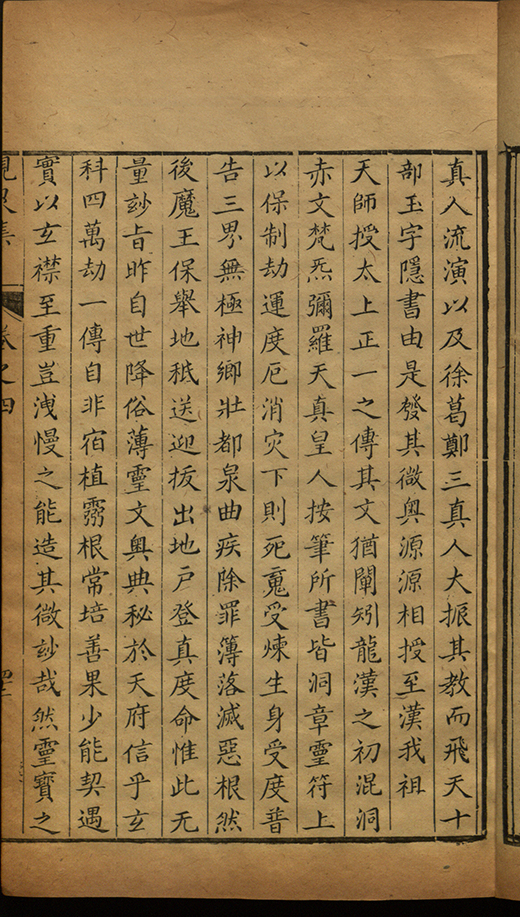 真人流演以及徐葛鄭三真人大振其教而飛天十
部玉字隱書由是發其微奧源源相授至漢我祖
天師授太上正一之傳其文猶闡矧龍漢之初混洞
赤文梵炁彌羅天真皇人按筆所書皆洞章靈符上
以保制劫運度厄消灾下則死䰟受煉生身受度普
告三界無極神鄉壯都泉曲疾除罪簿落滅惡根然
後魔王保舉地祇送迎拔出地戶登真度命惟此无
量玅旨昨自世降俗薄靈文奥典秘於天府信乎玄
科四萬劫一傳自非宿植靈根常培善果少能契遇
實以玄襟至重豈洩慢之能造其微玅哉然靈寶之
卷之四